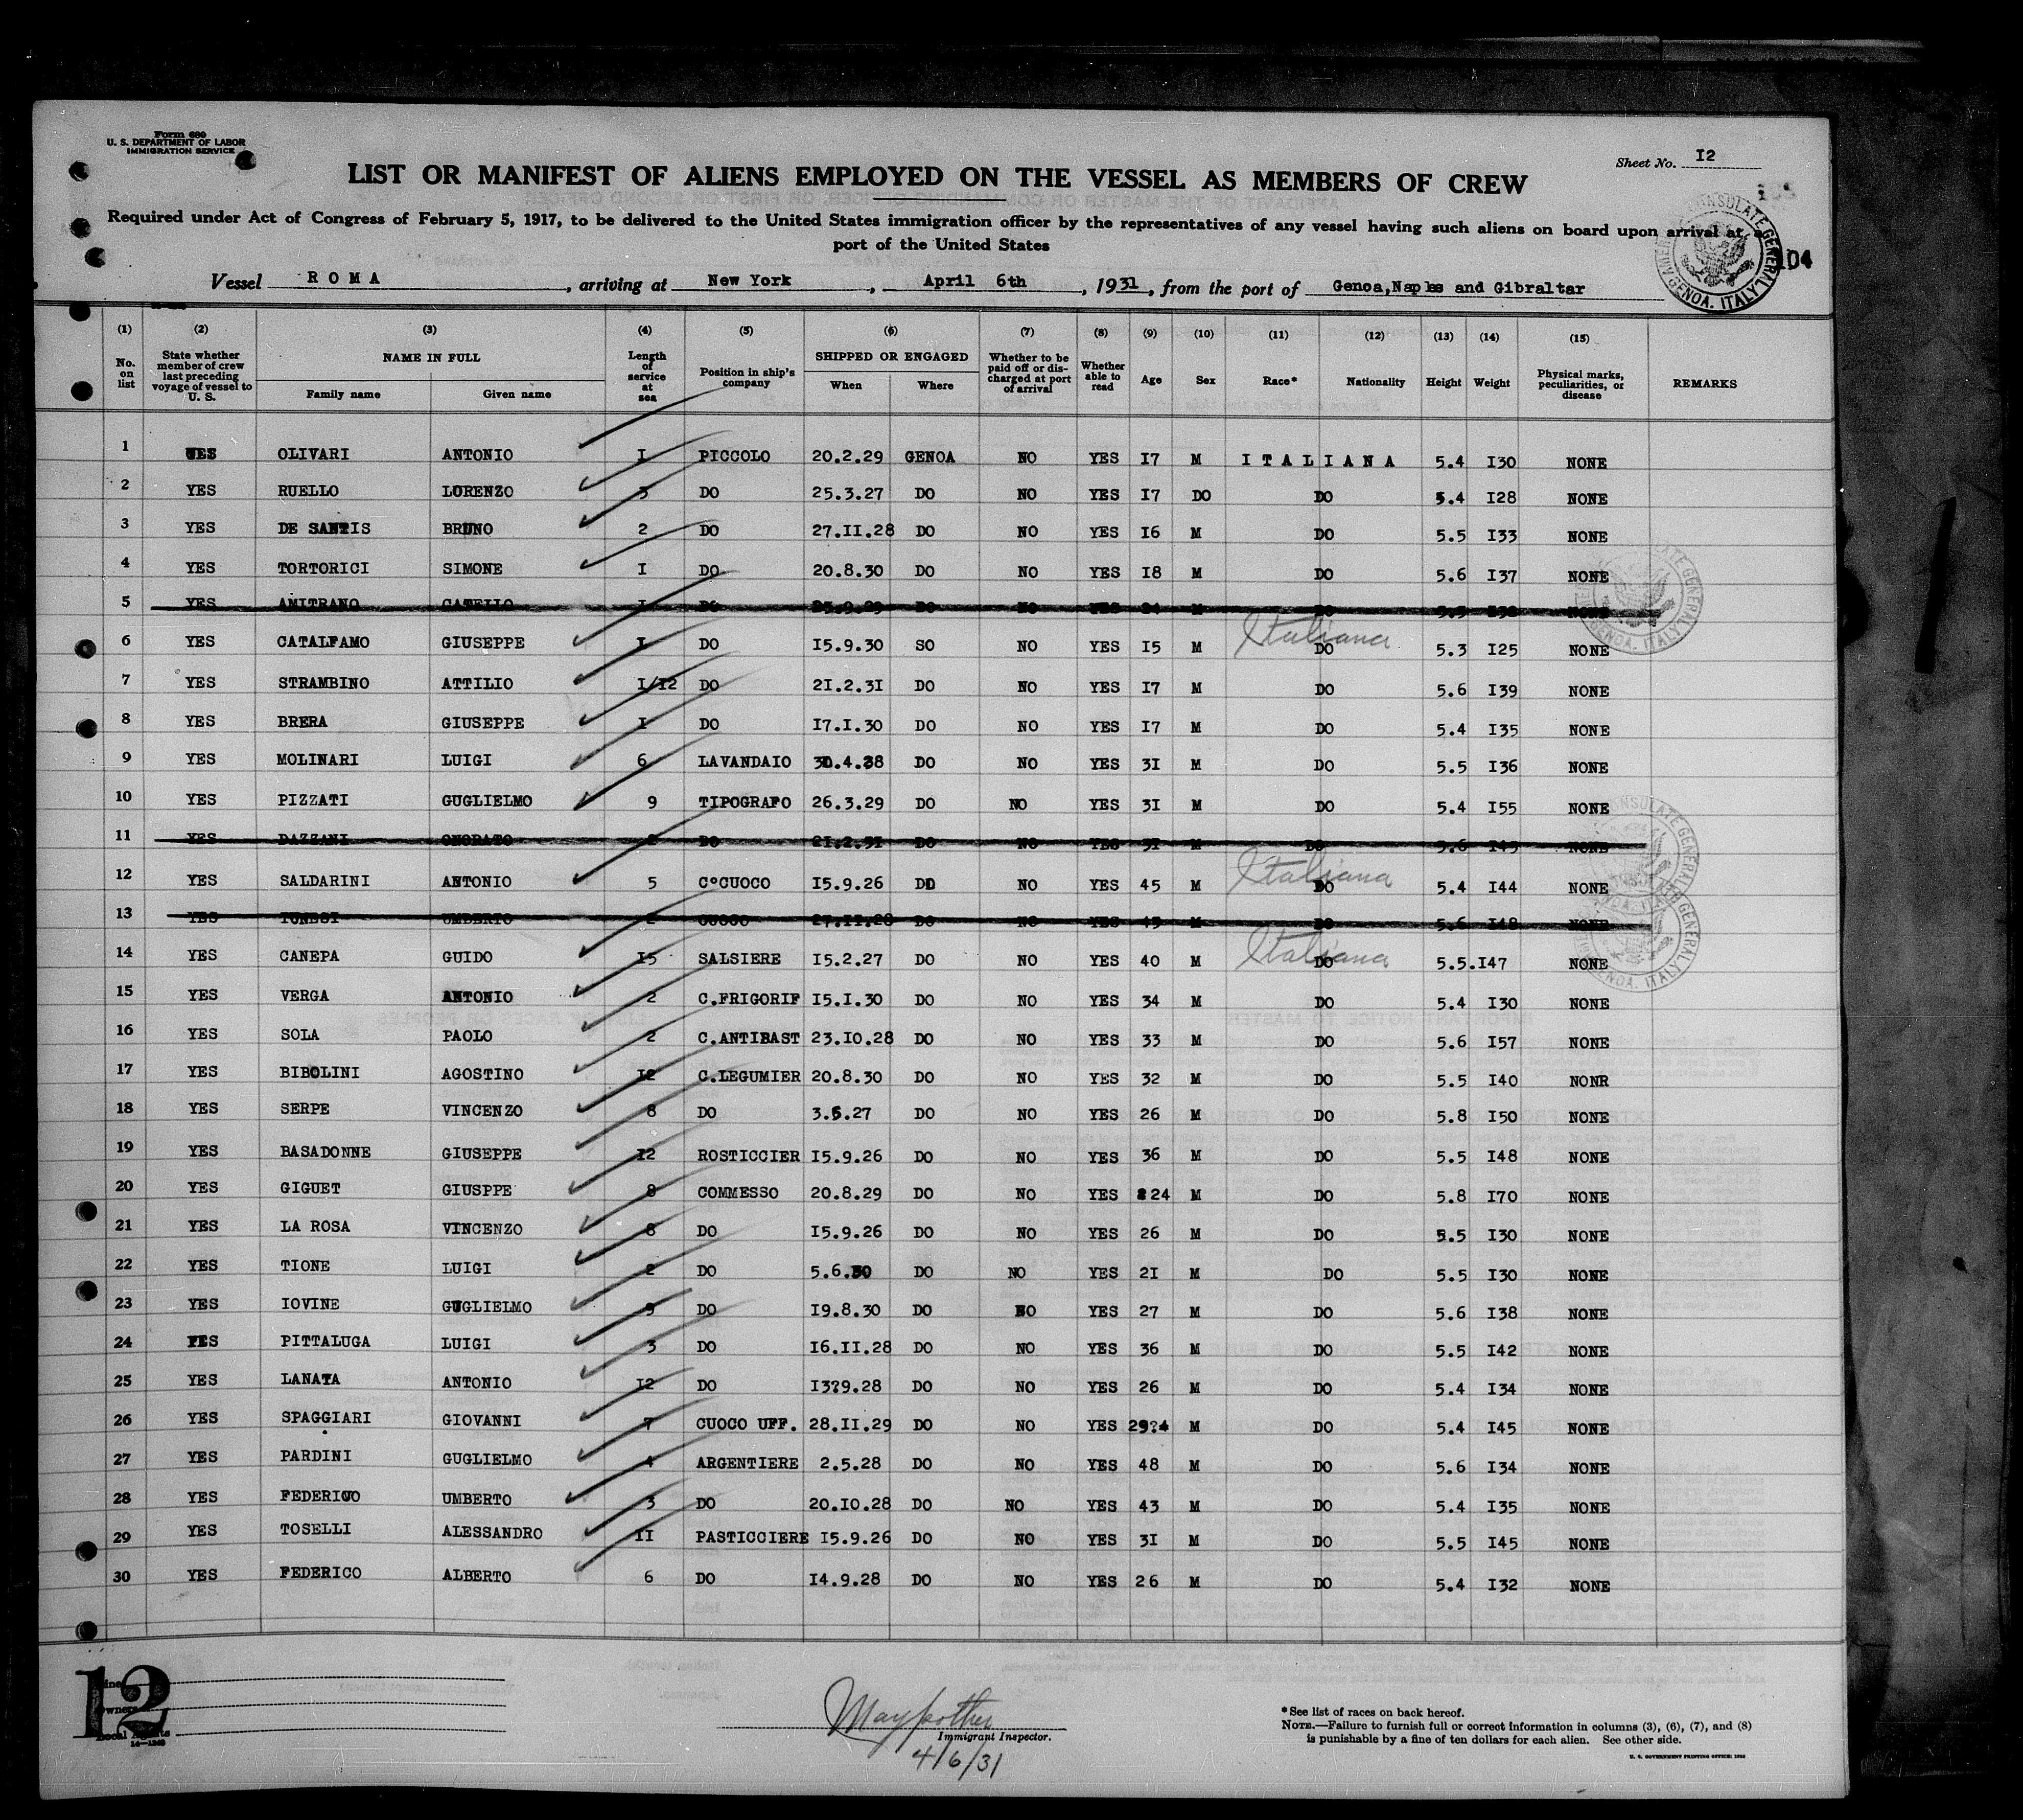 Form 680
U. S. DEPARTMENT OF LABOR
IMMIGRATION SERVICE
Sheet No. I2
LIST OR MANIFEST OF ALIENS EMPLOYED ON THE VESSEL AS MEMBERS OF CREW
Required under Act of Congress of February 5, 1917, to be delivered to the United States immigration officer by the representatives of any vessel having such aliens on board upon arrival at a
port of the United States
104
CONSULATE GENERAL GENOA, ITALY
Vessel ROMA, arriving at New York, April 6th, 1931, from the port of Genoa, Naples and Gibraltar
(1) (2) (3) (4) (5) (6) (7) (8) (9) (10) (11) (12) (13) (14) (15)
No. on list State whether member of crew last preceding voyage of vessel to U. S. NAME IN FULL Family name Given name Length of service at sea Position in ship's company SHIPPED OR ENGAGED When Where Whether to be paid off or discharged at port of arrival Whether able to read Age Sex Race* Nationality Height Weight Physical marks, peculiarities, or disease REMARKS
1 YES OLIVARI ANTONIO I PICCOLO 20.2.29 GENOA NO YES I7 M ITALIANA 5.4 I30 NONE
2 YES RUELLO LORENZO 3 DO 25.3.27 DO NO YES I7 DO DO 5.4 I28 NONE
3 YES DE SANTIS BRUNO 2 DO 27.II.28 DO NO YES I6 M DO 5.5 I33 NONE
4 YES TORTORICI SIMONE I DO 20.8.30 DO NO YES I8 M DO 5.6 I37 NONE
5 YES AMITRANO CATELLO I DO DO NO YES M DO NONE
6 YES CATALFAMO GIUSEPPE I DO I5.9.30 SO NO YES I5 M Italiana DO 5.3 I25 NONE
7 YES STRAMBINO ATTILIO I/I2 DO 2I.2.3I DO NO YES I7 M DO 5.6 I39 NONE
8 YES BRERA GIUSEPPE I DO I7.I.30 DO NO YES I7 M DO 5.4 I35 NONE
9 YES MOLINARI LUIGI 6 LAVANDAIO 30.4.28 DO NO YES 3I M DO 5.5 I36 NONE
10 YES PIZZATI GUGLIELMO 9 TIPOGRAFO 26.3.29 DO NO YES 3I M DO 5.4 I55 NONE
11 YES DAZZANI ONORATO 2 DO 2I.2.3I DO NO YES 3I M DO 5.6 I45 NONE
12 YES SALDARINI ANTONIO 5 C°CUOCO I5.9.26 DO NO YES 45 M Italiana DO 5.4 I44 NONE
13 YES TUNESI UMBERTO 2 CUOCO 27.II.28 DO NO YES 45 M DO 5.6 I48 NONE
14 YES CANEPA GUIDO I5 SALSIERE I5.2.27 DO NO YES 40 M Italiana DO 5.5.I47 NONE
15 YES VERGA ANTONIO 2 C.FRIGORIF I5.I.30 DO NO YES 34 M DO 5.4 I30 NONE
16 YES SOLA PAOLO 2 C.ANTIBAST 23.IO.28 DO NO YES 33 M DO 5.6 I57 NONE
17 YES BIBOLINI AGOSTINO I2 C.LEGUMIER 20.8.30 DO NO YES 32 M DO 5.5 I40 NONR
18 YES SERPE VINCENZO 8 DO 3.5.27 DO NO YES 26 M DO 5.8 I50 NONE
19 YES BASADONNE GIUSEPPE I2 ROSTICCIER I5.9.26 DO NO YES 36 M DO 5.5 I48 NONE
20 YES GIGUET GIUSPPE 8 COMMESSO 20.8.29 DO NO YES 24 M DO 5.8 I70 NONE
21 YES LA ROSA VINCENZO 8 DO I5.9.26 DO NO YES 26 M DO 5.5 I30 NONE
22 YES TIONE LUIGI 2 DO 5.6.30 DO NO YES 2I M DO 5.5 I30 NONE
23 YES IOVINE GUGLIELMO 9 DO I9.8.30 DO NO YES 27 M DO 5.6 I38 NONE
24 YES PITTALUGA LUIGI 3 DO I6.II.28 DO NO YES 36 M DO 5.5 I42 NONE
25 YES LANATA ANTONIO I2 DO I3?9.28 DO NO YES 26 M DO 5.4 I34 NONE
26 YES SPAGGIARI GIOVANNI 7 CUOCO UFF. 28.II.29 DO NO YES 29?4 M DO 5.4 I45 NONE
27 YES PARDINI GUGLIELMO 4 ARGENTIERE 2.5.28 DO NO YES 48 M DO 5.6 I34 NONE
28 YES FEDERICO UMBERTO 3 DO 20.IO.28 DO NO YES 43 M DO 5.4 I35 NONE
29 YES TOSELLI ALESSANDRO II PASTICCIERE I5.9.26 DO NO YES 3I M DO 5.5 I45 NONE
30 YES FEDERICO ALBERTO 6 DO I4.9.28 DO NO YES 26 M DO 5.4 I32 NONE
12
Line
Owners
Local Agents
14—1240
Immigrant Inspector.
4/6/31
*See list of races on back hereof.
NOTE.—Failure to furnish full or correct information in columns (3), (6), (7), and (8)
is punishable by a fine of ten dollars for each alien. See other side.
U. S. GOVERNMENT PRINTING OFFICE: